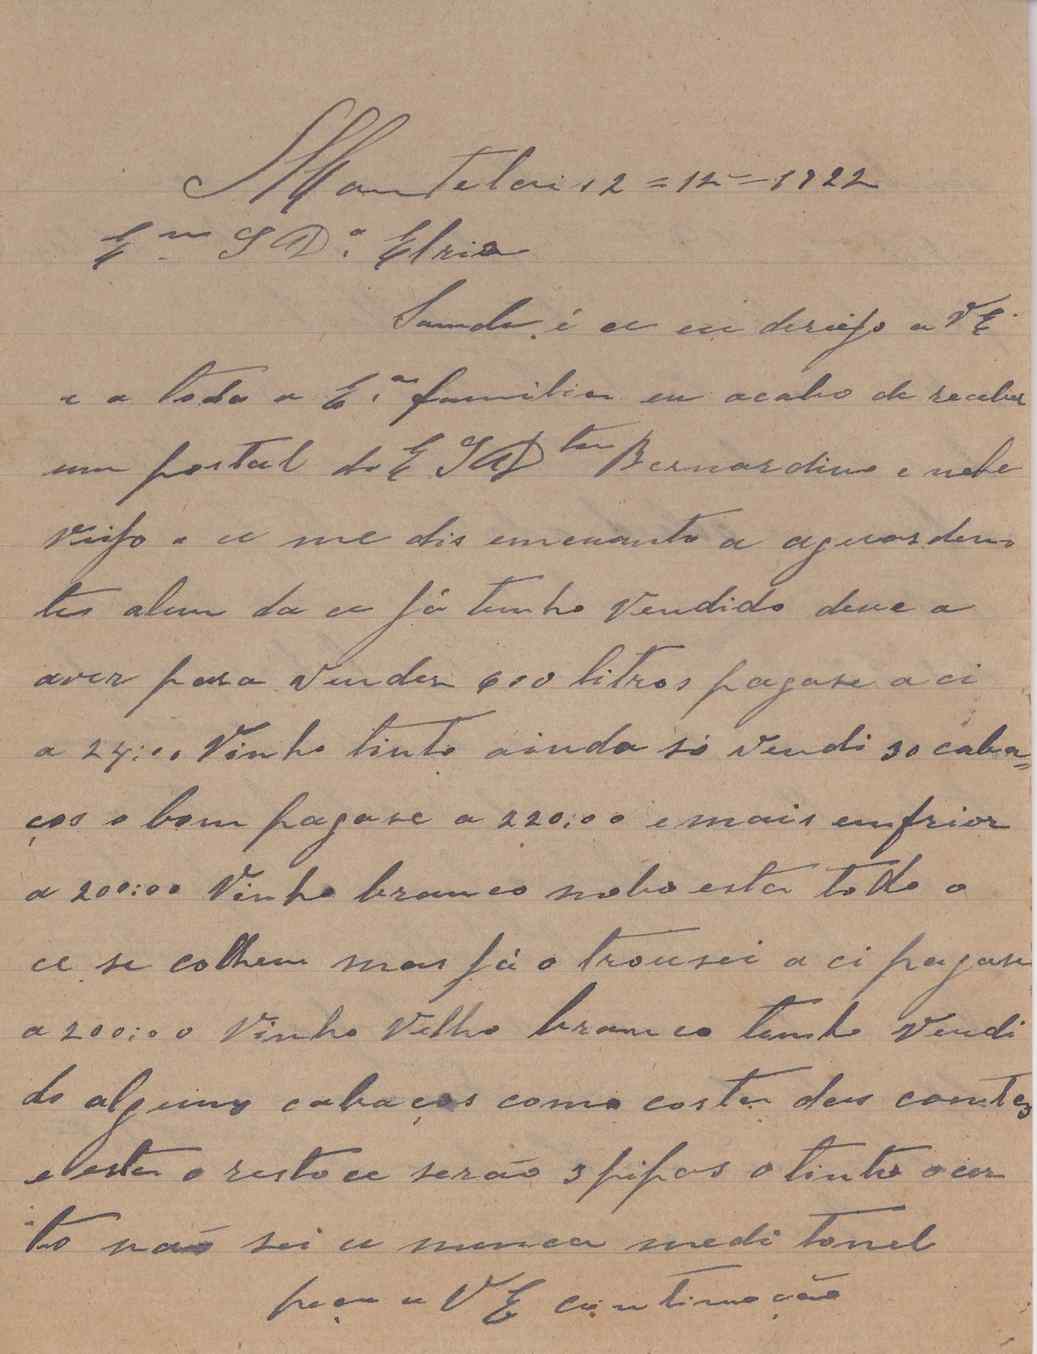 Mantelai 12=12-1922
Eᵐ S Dª Elria
Saude é ce eu deriijo a V E
e a toda a E.ª familia eu acabo de receber
um postal do E S Dtor Bernardino e nele
Veijo o ce me dis emcuanto a aguarden
tes alem da ce já tenho Vendido deve a
aver para Vender 600 litros pagase a ci
a 24:00 Vinho tinto ainda só vendi 30 caba=
ços o bom pagase a 220:00 e mais emfrior
a 200:00 Vinho branco nobo esta todo o
ce se colheu mas já o trousei a ci pagase
a 200:00 Vinho Velho branco tenho Vendi
do alguns cabaços como costa das contas
e esta o resto ce serão 3 pipas o tinto o cer
to não sei ce nunca medi tonel
peço a V E continoação